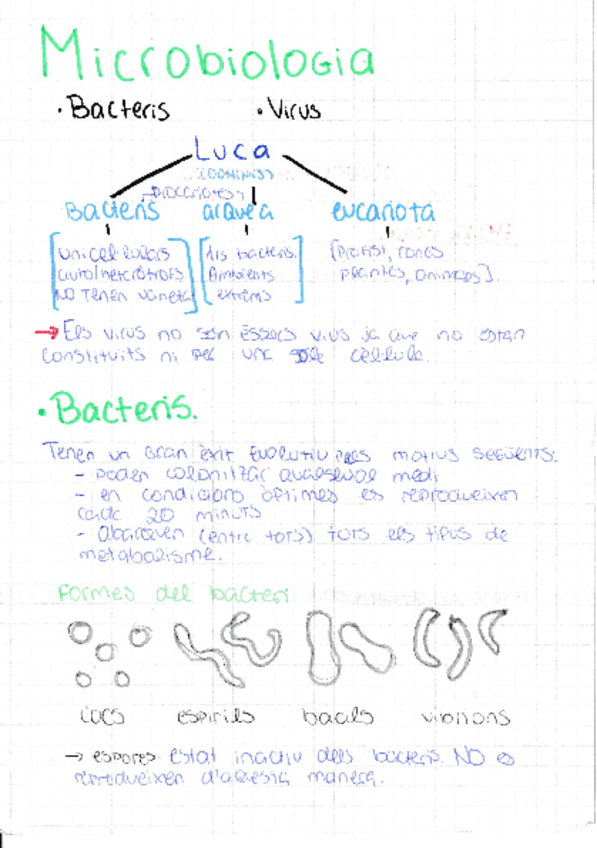 Microbiologia
· Bacteris · Virus
Luca
(DOMINIS)
→procariotes
Bacteris arquea eucariota
[unicel·lulars
auto/heteròtrofs
NO Tenen varietat]
[dis bacteris.
Ambients
extrems]
[Protist, fongs
plantes, animals].
→ Els virus no són éssers vius ja que no estan
constituits ni per una sole cèl·lula.
· Bacteris.
Tenen un gran èxit evolutiu pels motius següents:
- poden colonitzar qualsevol medi
- en condicions òptimes es reprodueixen
cada 20 minuts
- abarquen (entre tots) tots els tipus de
metabolisme.
Formes del bacteri
cocs espirils bacils vibrions
→ espores estat inactiu dels bacteris. NO es
reprodueixen d'aquesta manera.